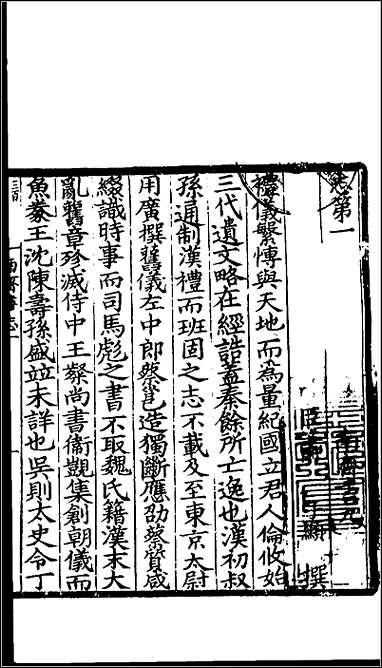 志第一 南齊書九
臣蕭子顯撰
禮儀繁博與天地而爲量紀國立君人倫攸始
三代遺文略在經誥蓋秦餘所亡逸也漢初叔
孫通制漢禮而班固之志不載及至東京太尉
胡廣撰舊儀左中郎蔡邕造獨斷應劭蔡質咸
綴識時事而司馬彪之書不取魏氏籍漢末大
亂舊章殄滅侍中王粲尚書衞覬集創朝儀而
魚豢王沈陳壽孫盛竝未詳也吳則太史令丁